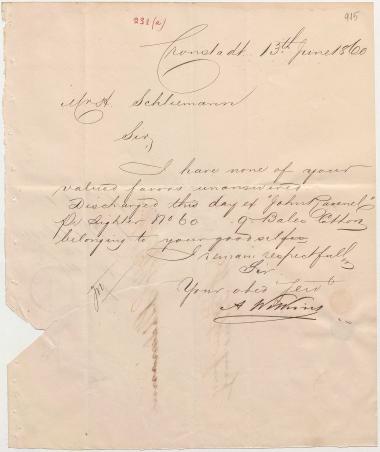 231(a)
915
Cronstadt 13th June 1860
Mr H. Schliemann
Sir,
I have none of your
valued favors unanswered
Discharged this day ex "John Ravenel"
Pr Lighter No 60 9 Bales Cotton
belonging to your goodself
I remain respectfully
Sir
Your obed Servt
A Wilkins